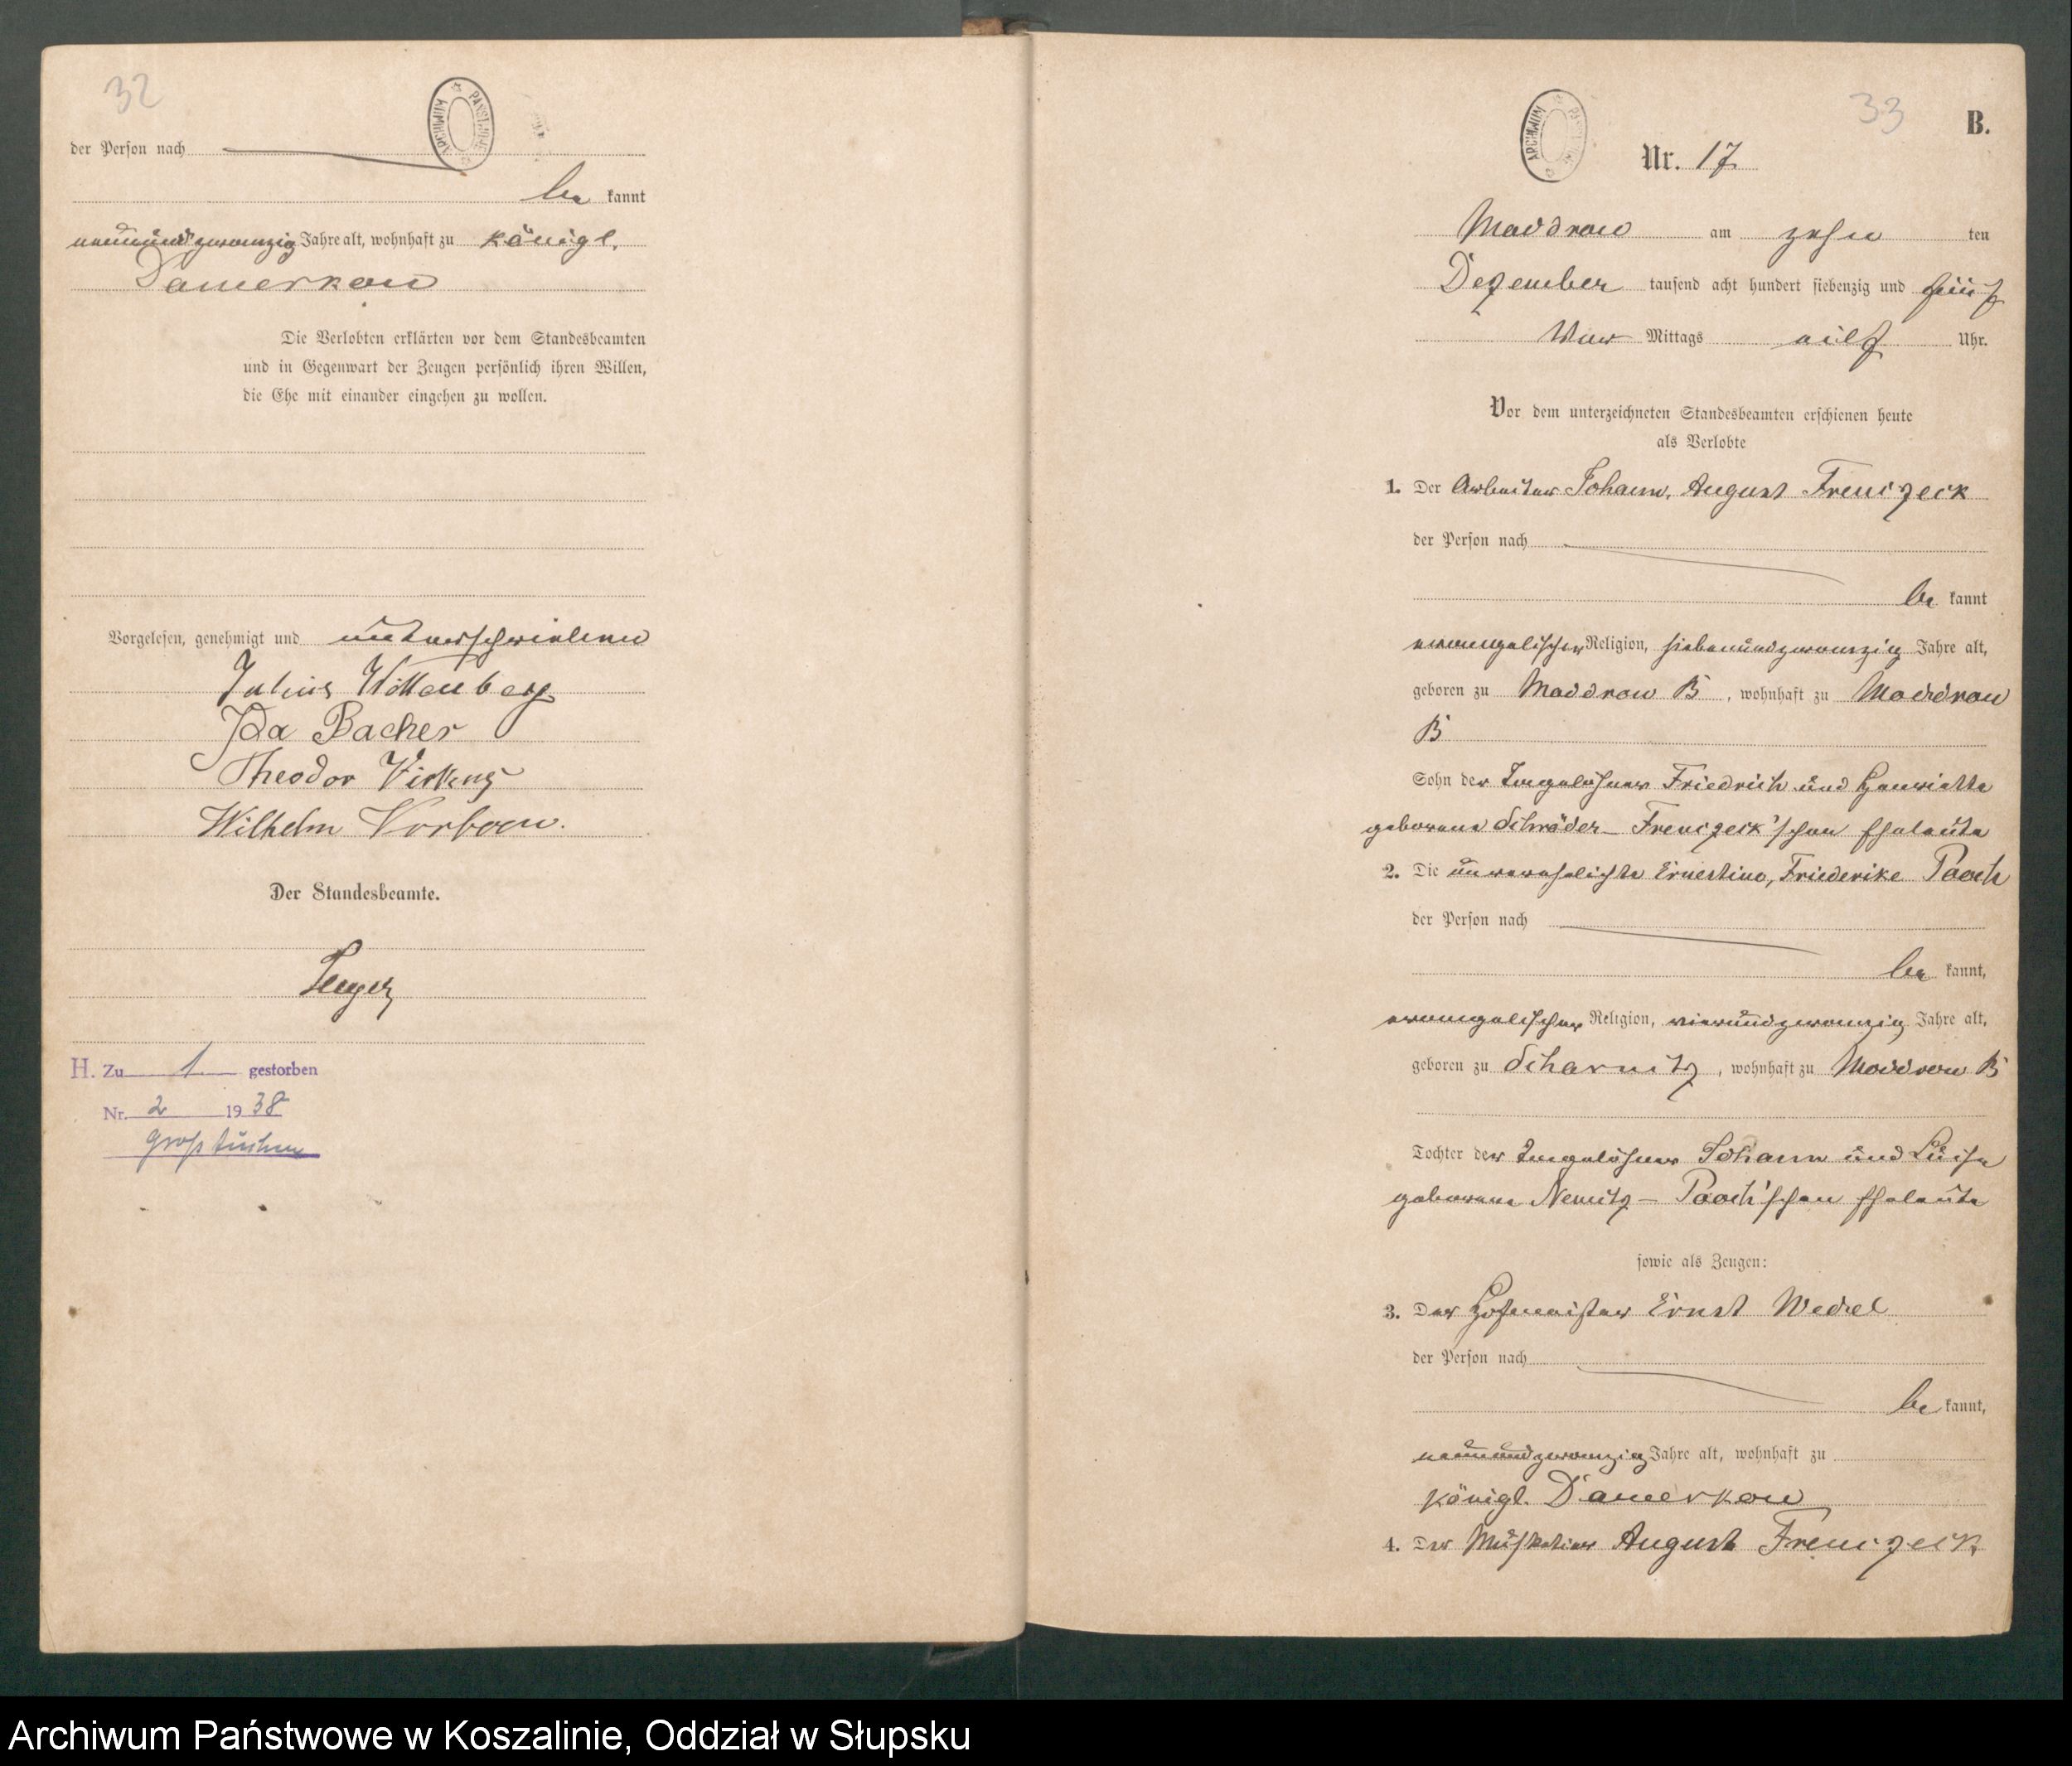 32
ARCHIWUM PAŃSTWOWE
der Person nach
be kannt
neunundzwanzig Jahre alt, wohnhaft zu Königl.
Damerkow
Die Verlobten erklärten vor dem Standesbeamten
und in Gegenwart der Zeugen persönlich ihren Willen,
die Ehe mit einander eingehen zu wollen.
Vorgelesen, genehmigt und unterschrieben
Julius Wittenberg
Ida Bacher
Theodor
Wilhelm
Der Standesbeamte.
H. Zu 1. gestorben
Nr. 2 1938
Groß Tuchen
33
B.
ARCHIWUM
Nr. 17
Moddrow am zehn ten
Dezember tausend acht hundert siebenzig und fünf
Vor Mittags eilf Uhr.
Vor dem unterzeichneten Standesbeamten erschienen heute
als Verlobte
1. Der Arbeiter Johann, August Frenczeck
der Person nach
be kannt
evangelischer Religion, siebenundzwanzig Jahre alt,
geboren zu Moddrow B, wohnhaft zu Moddrow
B
Sohn der Tagelöhner Friedrich und Henriette
geborene Schröder – Frenczeck'schen Eheleute
2. Die unverehelichte Ernestine, Friederike Paach
der Person nach
be kannt,
evangelischer Religion, vierundzwanzig Jahre alt,
geboren zu Scharnitz, wohnhaft zu Moddrow B
Tochter der Tagelöhner Johann und Luise
geborene Nemitz – Paach'schen Eheleute
sowie als Zeugen:
3. Der Hofmeister Ernst Wedel
der Person nach
be kannt,
neunundzwanzig Jahre alt, wohnhaft zu
Königl. Damerkow
4. Der Musketier August Frenczeck
Archiwum Państwowe w Koszalinie, Oddział w Słupsku